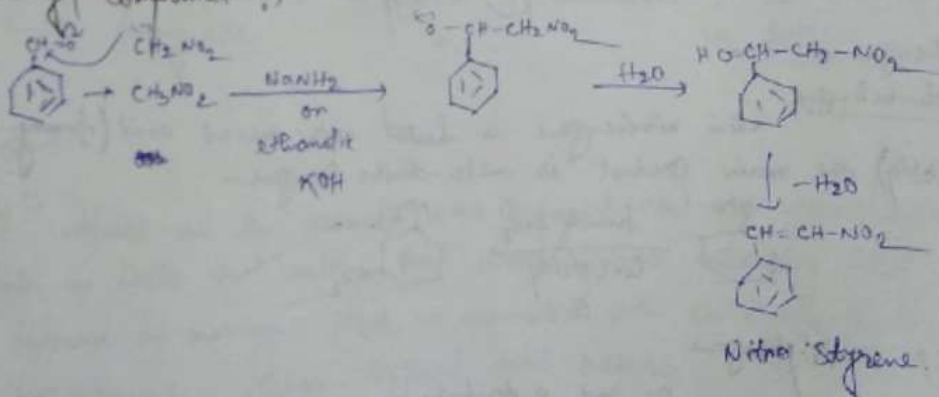 CH=O CH2 NO2
+ CH3NO2 NaNH2 or ethanolic KOH
O - CH - CH2 NO2
H2O
HO-CH-CH2-NO2
-H2O
CH = CH-NO2
Nitro Styrene.